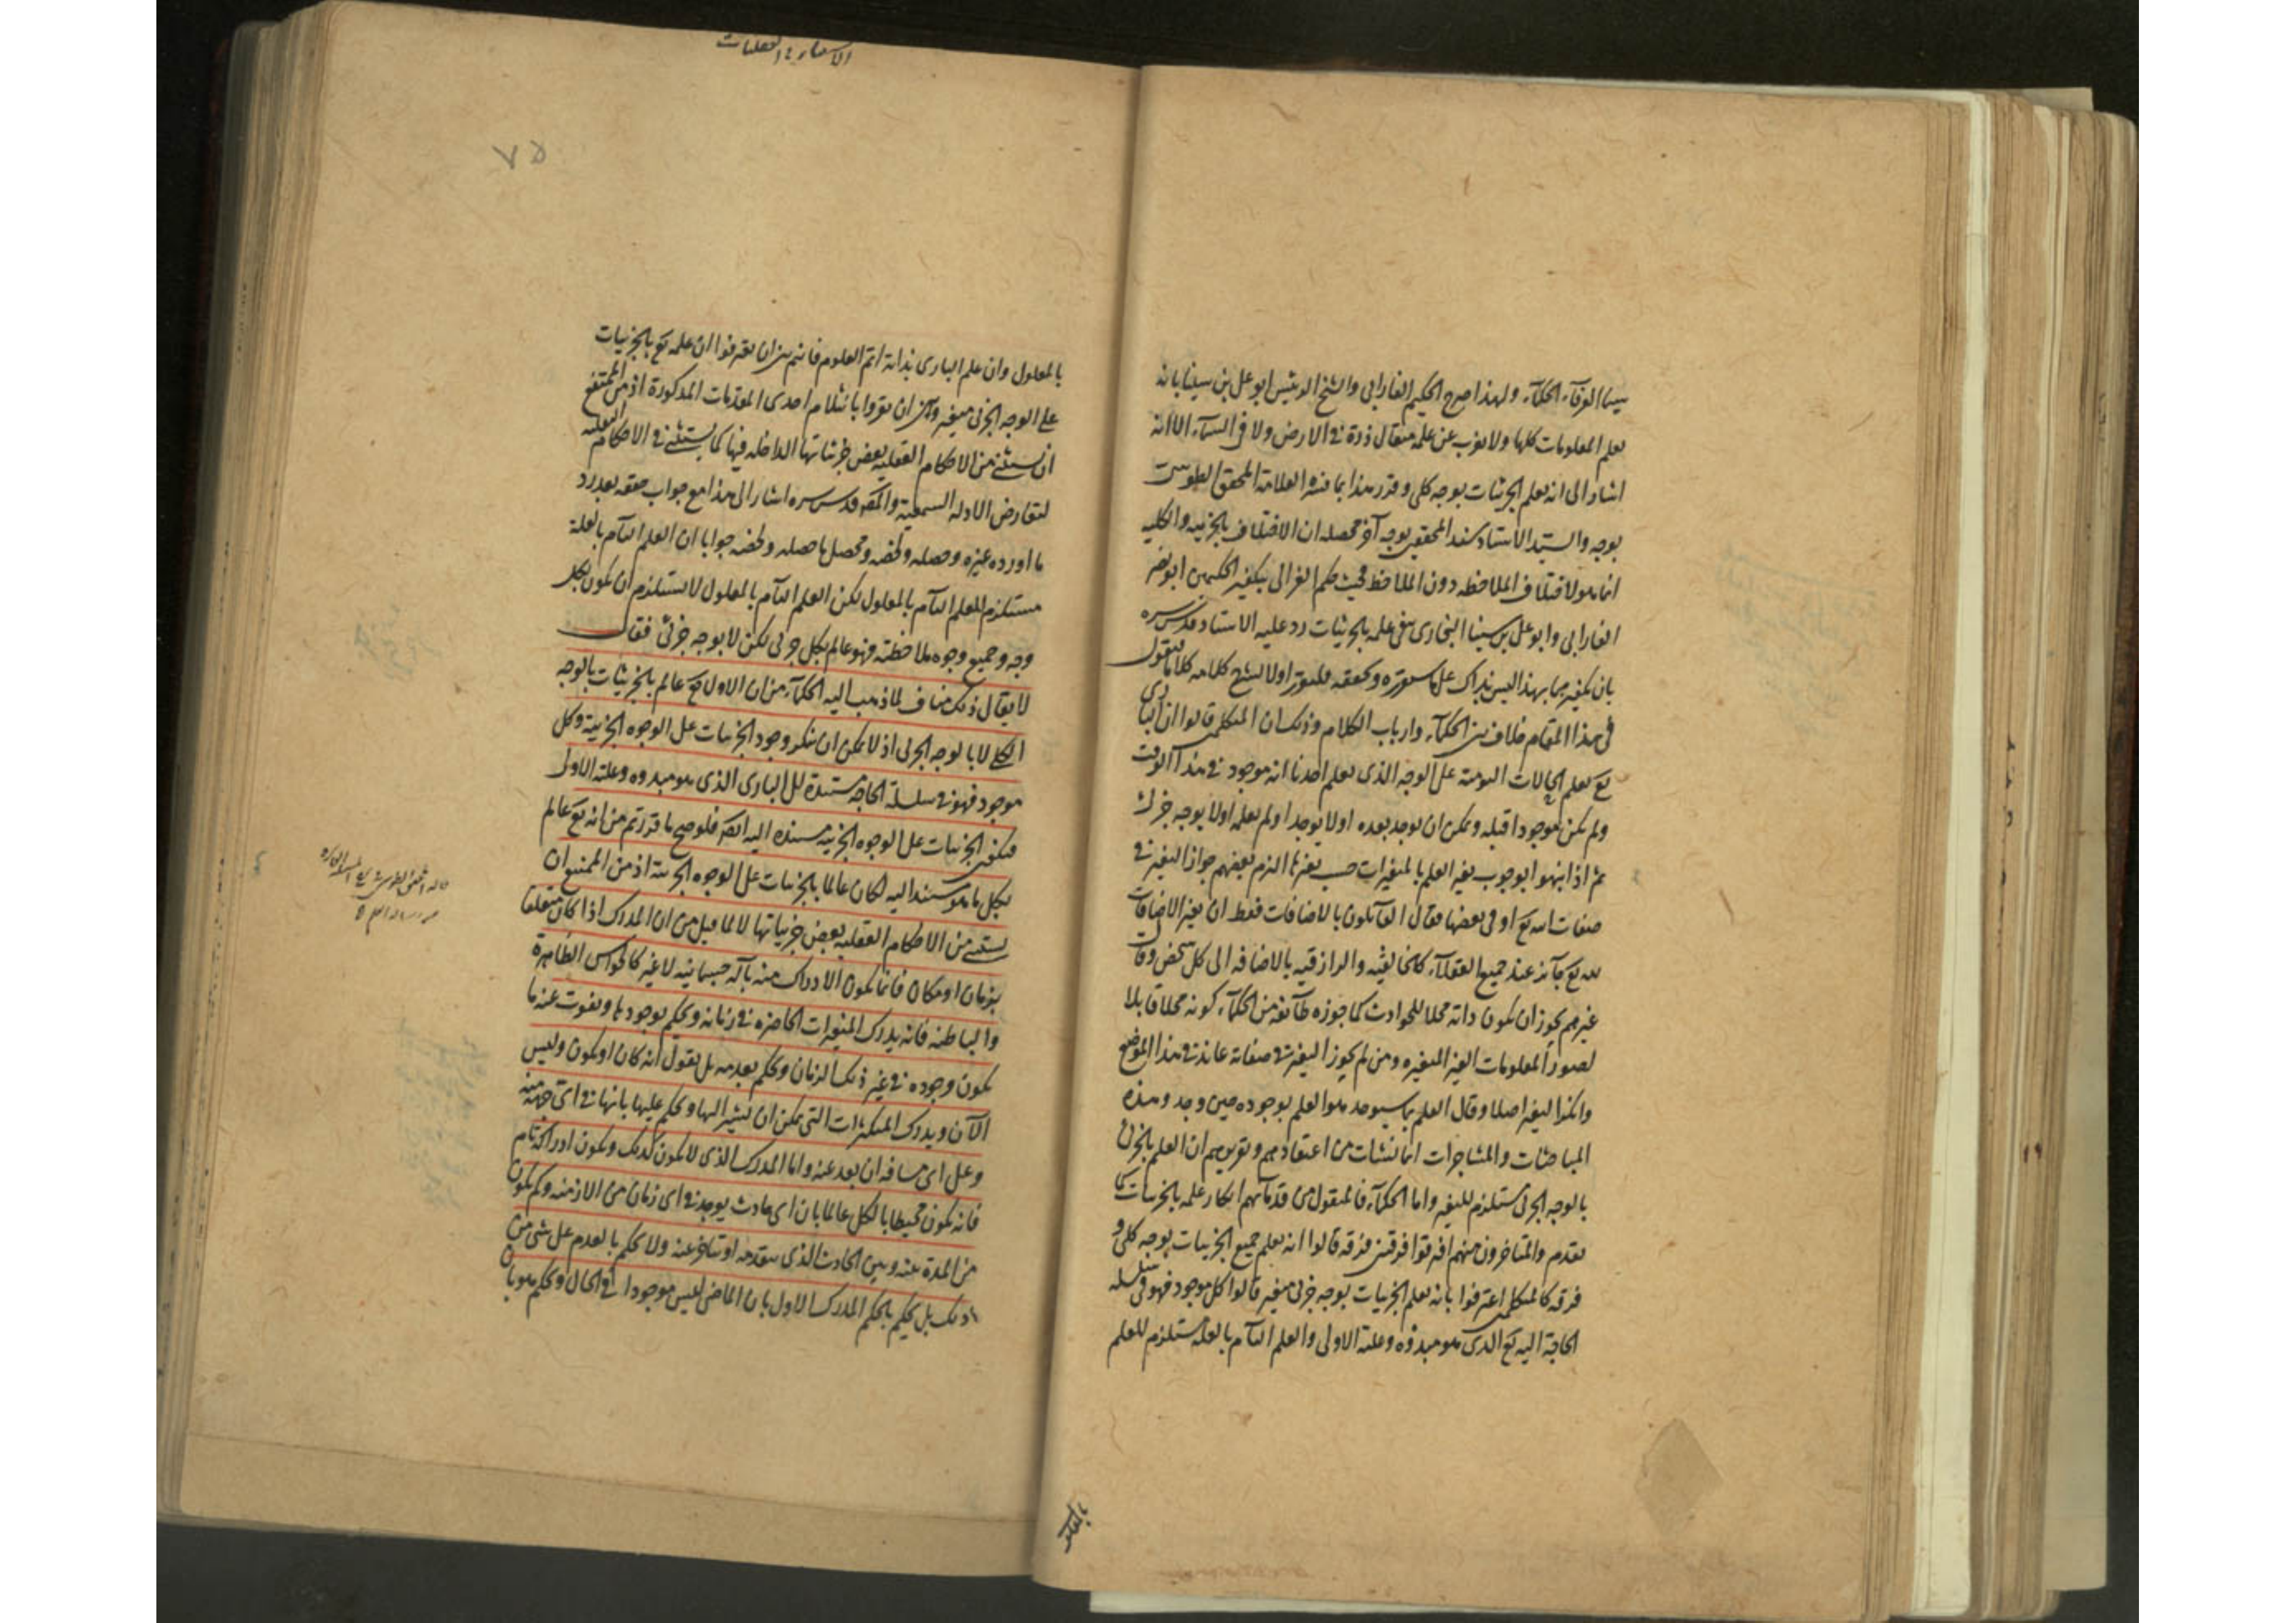 سيما العرفاء الحكماء ولهذا صرح الحكيم الفارابي والشيخ الرئيس ابو على بن سينا بانه
يعلم المعلومات كلها ولا يعزب عن علمه مثقال ذرة فى الارض ولا فى السماء الا انه
اشار الى انه يعلم الجزئيات بوجه كلى وقرر هذا بما فسره العلامة المحقق الطوسى
بوجه والسيد الاستاد سند المحققين بوجه آخر محصله ان الاختلاف بالجزئية والكلية
انما هو لاختلاف الملاحظه دون الملاحظ فحيث حكم الغزالى بتكفير الحكيمين ابو نصر
الفارابى وابو على بن سينا البخارى بنفى علمه بالجزئيات رد عليه الاستاد قدس سره
بان تكفيرهما بهذا ليس بذاك على ما ستقرره وتحققه فلنقرر اولا لشرح كلامه كلاما فنقول
فى هذا المقام خلاف بين الحكماء وارباب الكلام وذلك ان المتكلمين قالوا ان البارى
تع يعلم الحالات اليومية على الوجه الذى يعلم احدنا انه موجود فى هذا الوقت
ولم يكن موجودا قبله ويمكن ان يوجد بعده او لا يوجد اولم يعلمه اولا بوجه جزئى
ثم اذا انتهوا بوجوب تغير العلم بالمتغيرات حسب تغيرها التزم بعضهم جواز التغير فى
صفات الله تع او فى بعضها فقال القائلون بالاضافات فقط ان تغير الاضافات
لله تع جائز عند جميع العقلاء كالخالقية والرازقية بالاضافه الى كل شخص وقال
غيرهم يجوز ان يكون ذاته محلا للحوادث كما جوزه طائفة من الحكماء كونه محلا قابلا
لصور المعلومات الغير المتغيره ومن لم يجوز التغير فى صفاته عاند فى هذا الموضع
وانكر التغير اصلا وقال العلم بما سيوجد هو العلم بوجوده حين وجد وهذه
المباحثات والمشاجرات انما نشات من اعتقادهم وتوهمهم ان العلم بالجزئى
بالوجه الجزئى مستلزم للتغير واما الحكماء فالمنقول من قدمائهم انكار علمه بالجزئيات كما
تقدم والمتاخرون منهم افترقوا فرقتين فرقه قالوا انه يعلم جميع الجزئيات بوجه كلى و
فرقه كالمتكلمين اعترفوا بانه يعلم الجزئيات بوجه جزئى متغير قالوا كل موجود فهو فى سلسله
الحاجة اليه تع الذى هو مبدؤه وعلته الاولى والعلم التام بالعلة مستلزم للعلم
بالمعلول
٧٥
بالمعلول وان علم البارى بذاته اتم العلوم فانتم بين ان تعترفوا ان علمه تع بالجزئيات
على الوجه الجزئى متغير وبين ان تقروا بانثلام احدى المقدمات المذكورة اذ من الممتنع
ان يستثنى من الاحكام العقليه بعض جزئياتها الداخله فيها كما يستثنى فى الاحكام النقليه
لتعارض الادله السمعية والمص قدس سره اشار الى هذا مع جواب حققه بعد رد
ما اورده غيره وحصله ولخصه ومحصل ما حصله ولخصه جوابا ان العلم التام بالعلة
مستلزم للعلم التام بالمعلول لكن العلم التام بالمعلول لا يستلزم ان يكون بكل
وجه وجميع وجوه ملاحظته فهو عالم بكل جزئى لكن لا بوجه جزئى فقال
لا يقال ذلك مناف لما ذهب اليه الحكماء من ان الاول تع عالم بالجزئيات بالوجه
الكلى لا بالوجه الجزئى اذ لا يمكن ان ينكر وجود الجزئيات على الوجوه الجزئية وكل
موجود فهو فى سلسلة الحاجة مستندة الى البارى الذى هو مبدوه وعلته الاولى
فيكون الجزئيات على الوجوه الجزئية مستنده اليه ايضا فلو صح ما قررتم من انه تع عالم
بكل ما هو مستند اليه لكان عالما بالجزئيات على الوجوه الجزئية اذ من الممتنع ان
يستثنى من الاحكام العقليه بعض جزئياتها لانا لما قيل من ان المدرك اذا كان متعلقا
بزمان او مكان فانما يكون الادراك منه بآلة جسمانيه لا غير كالحواس الظاهرة
والباطنه فانه يدرك المتغيرات الحاضره فى زمانه ويحكم بوجودها ويفوت عنه ما
يكون وجوده فى غير ذلك الزمان ويحكم بعدمه بل يقول انه كان او يكون وليس
الآن ويدرك المتكثرات التى يمكن ان يشير اليها ويحكم عليها بانها فى اى جهة منه
وعلى اى مسافه ان بعد عنه واما المدرك الذى لا يكون كذلك ويكون ادراكه تام
فانه يكون محيطا بالكل عالما بان اى حادث يوجد فى اى زمان من الازمنه وكم يكون
من المدة بينه وبين الحادث الذى يتقدمه او يتاخر عنه ولا يحكم بالعدم على شئ من
ذلك بل يحكم بالحكم المدرك الاول بان الماضى ليس موجودا فى الحال ويحكم هو بان